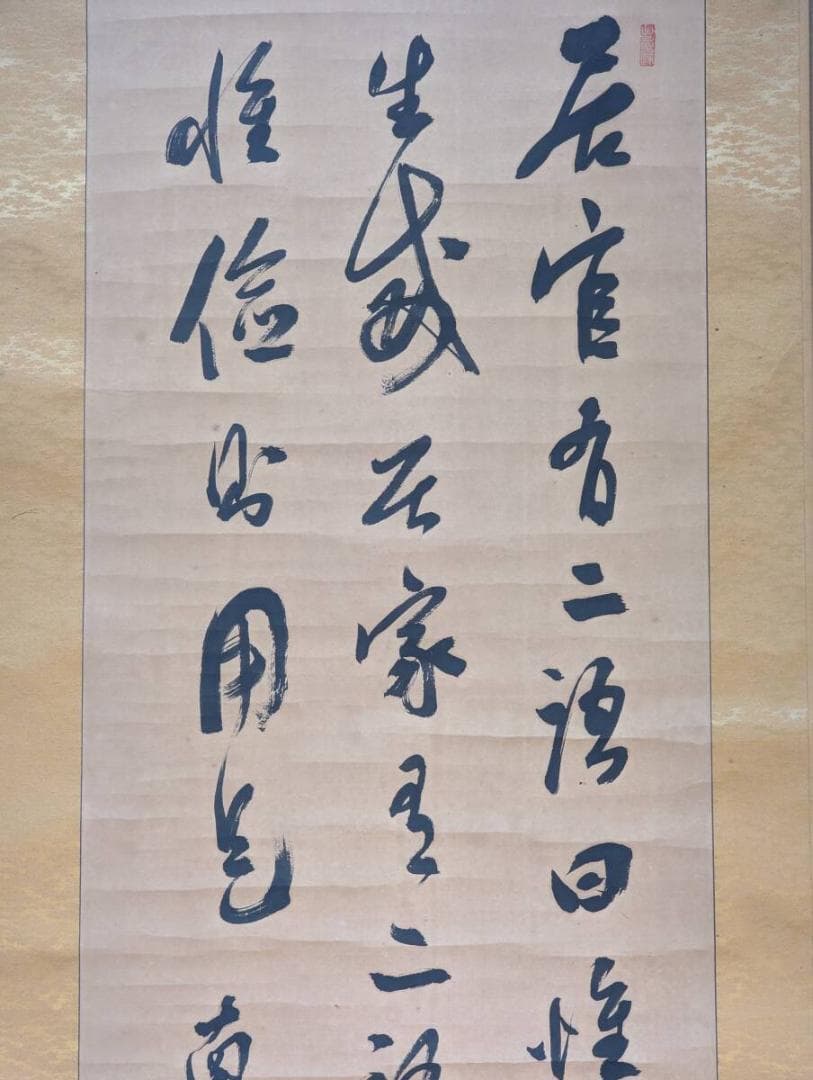 居官有二語曰惟
生威居家有二語
惟儉則用足 南